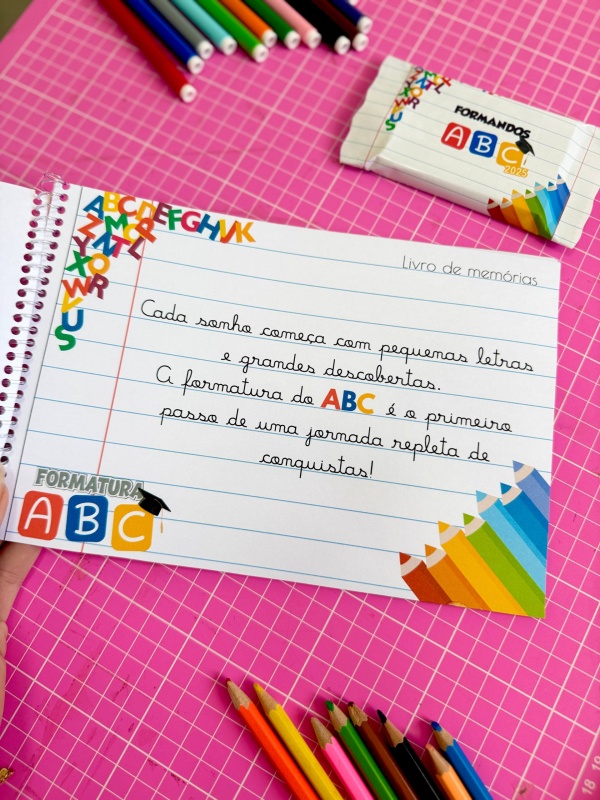 FORMANDOS
ABC
2025
Livro de memórias
Cada sonho começa com pequenas letras
e grandes descobertas.
A formatura do ABC é o primeiro
passo de uma jornada repleta de
conquistas!
FORMATURA
ABC